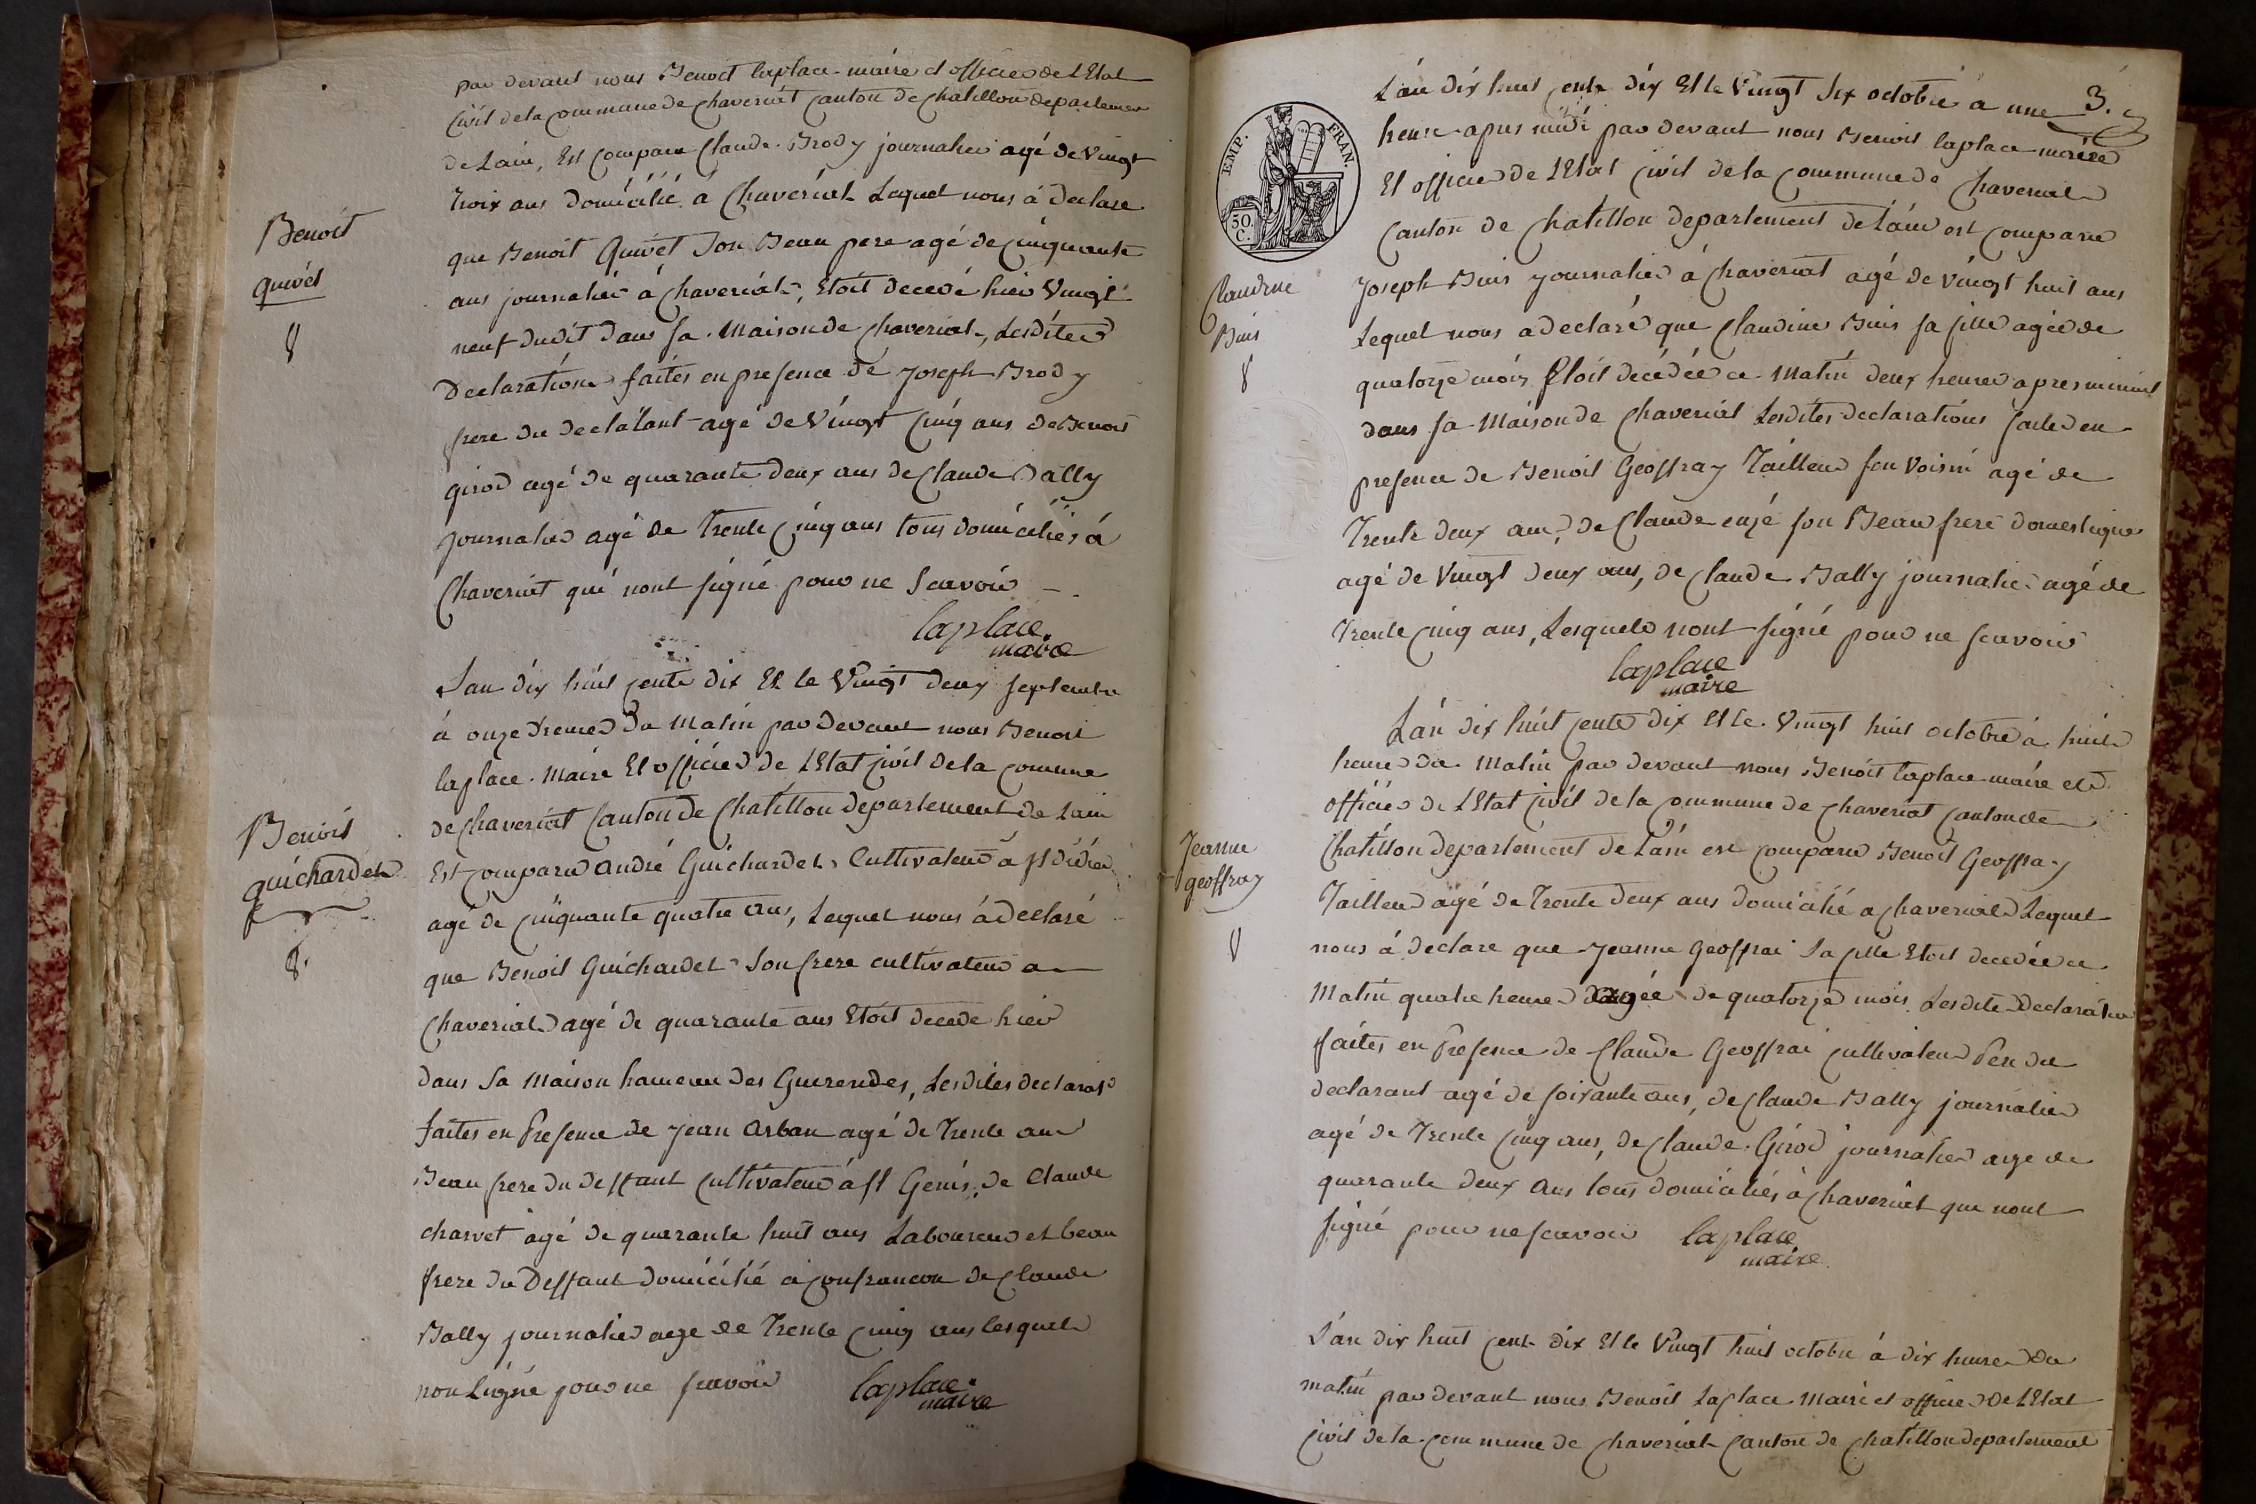 par devant nous Benoit laplace maire et officier de LEtat
Civil de la commune de Chaveriat Canton de Chatillon departemen
de Lain, Est Comparu Claude Brody journalier agé de Vingt
trois ans domicilié a Chaveriat Lequel nous à declaré
que Benoit Quivet Son Beau pere agé de Cinquante
Benoit
quivet
8
ans journalier à Chaveriat, Etoit decedé hier Vingt
neuf dudit dans sa Maison de Chaveriat, Lesdites
Declarations faites en presence de Joseph Brody
frere du declarant agé de Vingt Cinq ans de Benoit
girod agé de quarante deux ans de Claude Bally
journalier agé de Trente Cinq ans tous domiciliés á
Chaveriat qui nont signé pour ne Scavoir
laplace
maire
Lan dix huit cents dix Et le Vingt deux septembre
à onze heures du Matin par Devant nous Benoit
laplace Maire Et officier de LEtat civil de la comune
de Chaveriat Canton de Chatillon departement de Lain
Benoit
guichardet
8.
Est comparu andré Guichardet Cultivateur a st didier
agé de cinquante quatre ans, Lequel nous à declaré
que Benoit Guichardet Son frere cultivateur a
Chaveriat agé de quarante ans Etoit decede hier
dans Sa Maison hameau des Guerendes, Lesdites declarat
faites en Presence de Jean arban agé de Trente ans
Beau frere du deffant Cultivateur à st Genis, de Claude
charvet agé de quarante huit ans Laboureur et beau
frere du Deffant domicilié à Confrancon de Claude
Bally journalier age de Trente Cinq ans lesquels
non Signé pour ne scavoir
laplace
maire
3.
Lán dix huit cents dix Et le Vingt six octobre a une
heure apres midi par devant nous Benoit laplace maire
Et officier de LEtat Civil de la Commune de Chaveriat
EMP. FRAN.
50. C.
Canton de Chatillon departement de Láin est comparu
Claudine
Buis
8
Joseph Buis journalier à Chaveriat agé de vingt huit ans
Lequel nous a declaré que Claudine Buis sa fille agée de
quatorze mois Etoit décédée ce Matin deux heures apres minuit
dans sa Maison de Chaveriat Lesdites declarations faites en
presence de Benoit Geoffray Tailleur son Voisin agé de
Trente deux ans, de Claude son Beau frere domestique
agé de Vingt deux ans, de Claude Bally journalier agé de
Trente Cinq ans, Lesquels nont signé pour ne scavoir
laplace
maire
Lán dix huit cents dix Et le Vingt huit octobre à huit
heures du Matin par devant nous Benoit laplace maire et
officier de LEtat Civil de la Commune de Chaveriat Canton de
Jeanne
geoffray
8
Chatillon departement de Láin est comparu Benoit Geoffray
Tailleur agé de Trente deux ans domicilié a Chaveriat Lequel
nous à declare que Jeanne Geoffrai Sa fille Etoit decedée ce
Matin quatre heures agée de quatorze mois Lesdites Declaration
faites en Presence de Claude Geoffrai cultivateur Pere du
declarant agé de soixante ans, de Claude Bally journalier
agé de Trente Cinq ans, de Claude Girod journalier age de
quarante deux ans tous domiciliés à Chaveriat que nont
signé pour ne scavoir
laplace
maire
L'an dix huit cent dix Et le Vingt huit octobre à dix heures du
matin par devant nous Benoit Laplace Maire et officier de LEtat
civil de la commune de Chaveriat Canton de Chatillon departement